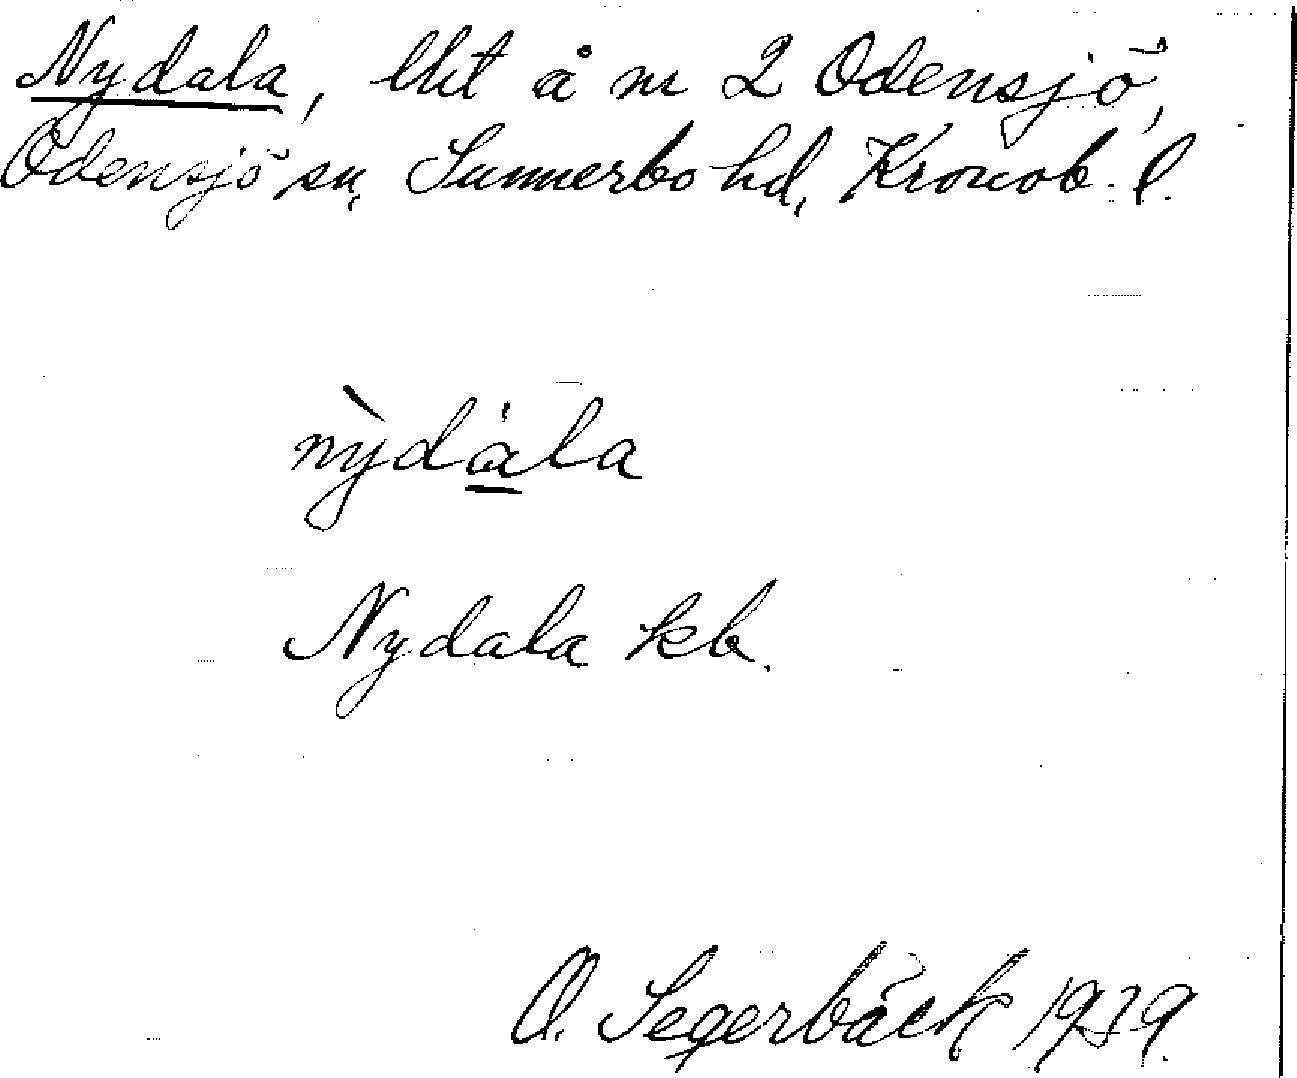 Nydala, lht å nr 2 Odensjö,
Odensjö sn, Sunnerbo hd, Kronob. l.
nỳdàla
Nydala kb.
O. Segerbäck 1939.